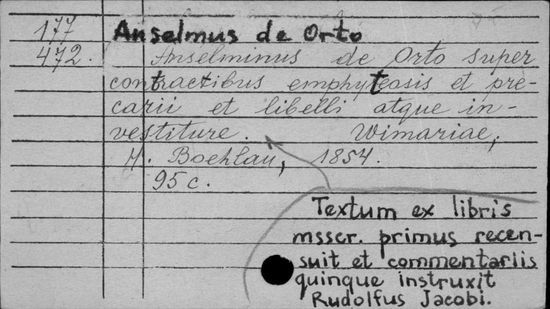 177
472.
Anselmus de Orto
Anselminus de Orto super
contractibus emphyteosis et pre-
carii et libelli atque in-
vestiture. Wimariae,
H. Boehlau, 1854.
95 c.
Textum ex libris
msscr. primus recen-
suit et commentariis
quinque instruxit
Rudolfus Jacobi.